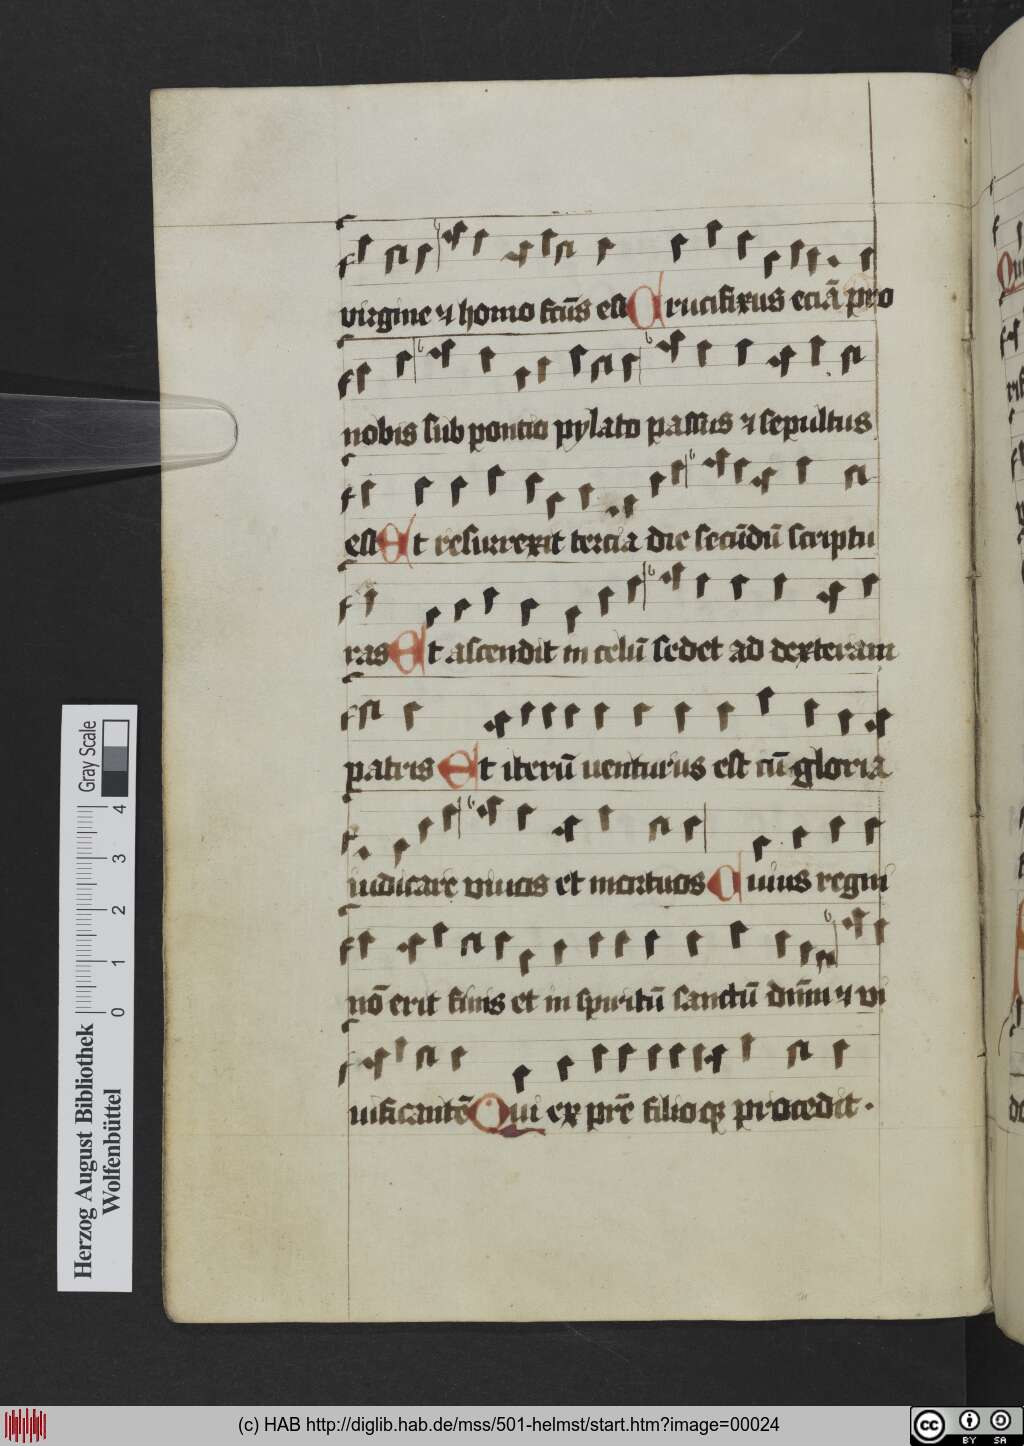 virgine ⁊ homo fcūs est Crucifixus eciā pro
nobis sub poncio pylato passus ⁊ sepultus
est Et resurrexit tercia die secūdū scriptu
ras Et ascendit in celū sedet ad dexteram
patris Et iterū uenturus est cū gloria
iudicare viuos et mortuos Cuius regni
nō erit finis et in spiritū sanctū dn̄m ⁊ vi
uificantē Qui ex pr̄e filioqꝫ procedit.
Gray Scale
4
3
2
1
0
Herzog August Bibliothek
Wolfenbüttel
(c) HAB http://diglib.hab.de/mss/501-helmst/start.htm?image=00024
cc
BY SA